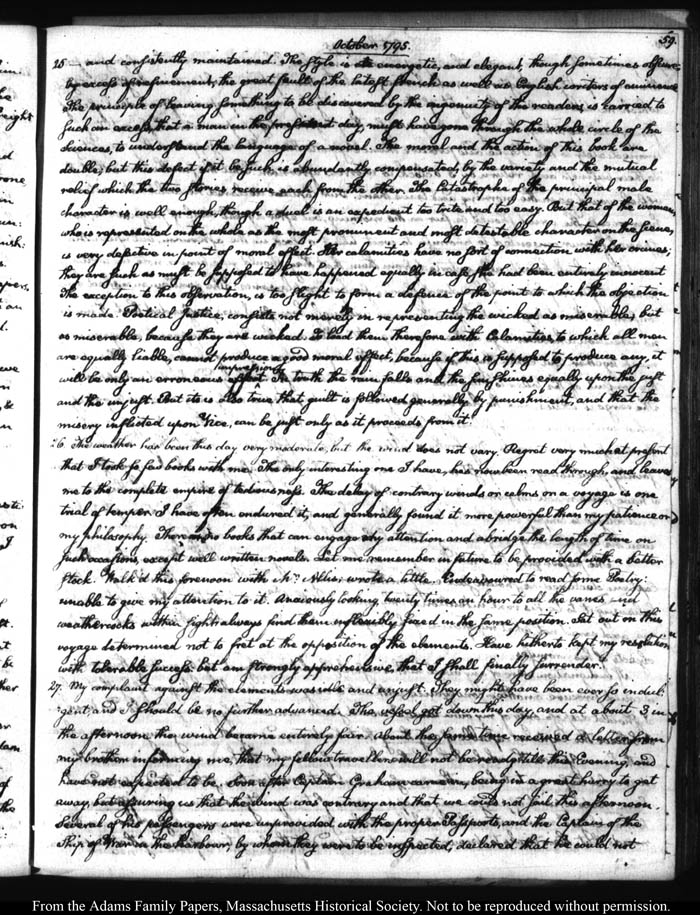 October 1795.
59.
25 and consistently maintained. The style is energetic, and elegant, though sometimes obscure,
by excess of refinement, the great fault of the latest French as well as English writers of
The principle of leaving something to be discovered by the ingenuity of the readers, is carried to
such an excess, that a man in the present day, must have gone through the whole circle of the
sciences, to understand the language of a novel. The moral and the action of this book are
double, but this defect if it be such, is abundantly compensated, by the variety and the mutual
relief which the two stories receive each from the other. The Catastrophe of the principal male
character is well enough, though a duel is an expedient too trite and too easy. But that of the woman,
who is represented on the whole as the most prominent and most detestable character on the scene,
is very defective in point of moral effect. Her calamities have no sort of connection with her crimes;
they are such as must be supposed to have happened equally in case she had been entirely innocent
The exception to this observation, is too slight to form a defence of the point to which the objection
is made. Poetical Justice, consists not merely in representing the wicked as miserable, but
as miserable, because they are wicked. To load them therefore with Calamities to which all men
are equally liable, cannot produce a good moral effect, because if this is supposed to produce any, it
will be only an erroneous impression. In truth the rain falls and the sun shines equally upon the just
and the unjust. But it is also true that guilt is followed generally by punishment, and that the
misery inflicted upon Vice, can be just only as it proceeds from it.
26. The weather has been this day very moderate, but the wind does not vary. Regret very much at present
that I took so few books with me. The only interesting one I have, has now been read through, and leaves
me to the complete empire of tediousness. The delay of contrary winds or calms on a voyage is one
trial of temper. I have often endured it, and generally found it more powerful than my patience or
my philosophy. There are no books that can engage my attention and abridge the length of time on
such occasions, except well written novels. Let me remember in future to be provided with a better
stock. Walk'd this forenoon with Mr. wrote a little. Endeavoured to read some Poetry:
unable to give my attention to it. Anxiously looking twenty times an hour to all the vanes and
weathercocks within sight always find them inflexibly fixed in the same position. Set out on this
voyage determined not to fret at the opposition of the elements. Have hitherto kept my resolution
with tolerable success: but am strongly apprehensive, that I shall finally surrender.
27. My complaint against the elements was idle and unjust. They might have been ever so indul:
:gent, and I should be no further advanced. The vessel got down this day, and at about 3 in
the afternoon the wind became entirely fair. About the same time received a letter from
my brother informing me, that my fellow travellers will not be ready till this Evening, and
have not expected to be. Soon after Captain came in, being in a great hurry to get
away, but assuring us that the wind was contrary and that we could not sail this afternoon.
Several of his passengers were unprovided with the proper Passports, and the Captain of the
Ship of War in the harbour, by whom they were to be inspected, declared that he could not
From the Adams Family Papers, Massachusetts Historical Society. Not to be reproduced without permission.